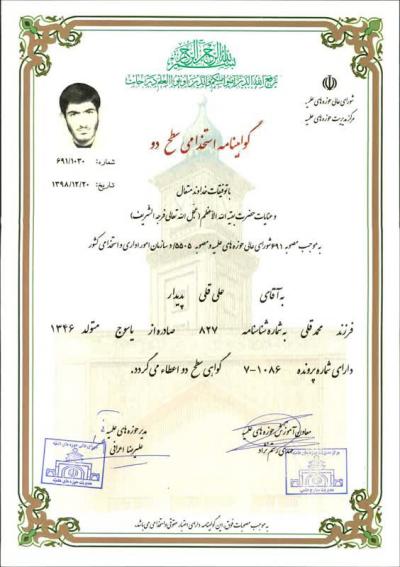 بسم الله الرحمن الرحیم
یرفع الله الذین آمنوا منکم والذین اوتوا العلم درجات
شورای عالی حوزه های علمیه
مرکز مدیریت حوزه های علمیه
گواهینامه استخدامی سطح دو
شماره: ۶۹۱/۱۰۳۰
تاریخ: ۱۳۹۸/۱۲/۲۰
با توفیقات خداوند متعال
و عنایات حضرت بقیة الله الاعظم (عجل الله تعالی فرجه الشریف)
به موجب مصوبه ۶۹۱ شورای عالی حوزه های علمیه و مصوبه ۵۵۰۵/د سازمان امور اداری و استخدامی کشور
به آقای علی قلی پدیدار
فرزند محمد قلی به شماره شناسنامه ۸۲۷ صادره از یاسوج متولد ۱۳۴۶
دارای شماره پرونده ۱۰۸۶-۷ گواهی سطح دو اعطاء می گردد.
معاون آموزش حوزه های علمیه
مدیر حوزه های علمیه
علیرضا اعرافی
به موجب مصوبات فوق، این گواهینامه دارای اعتبار حقوقی و استخدامی می باشد.